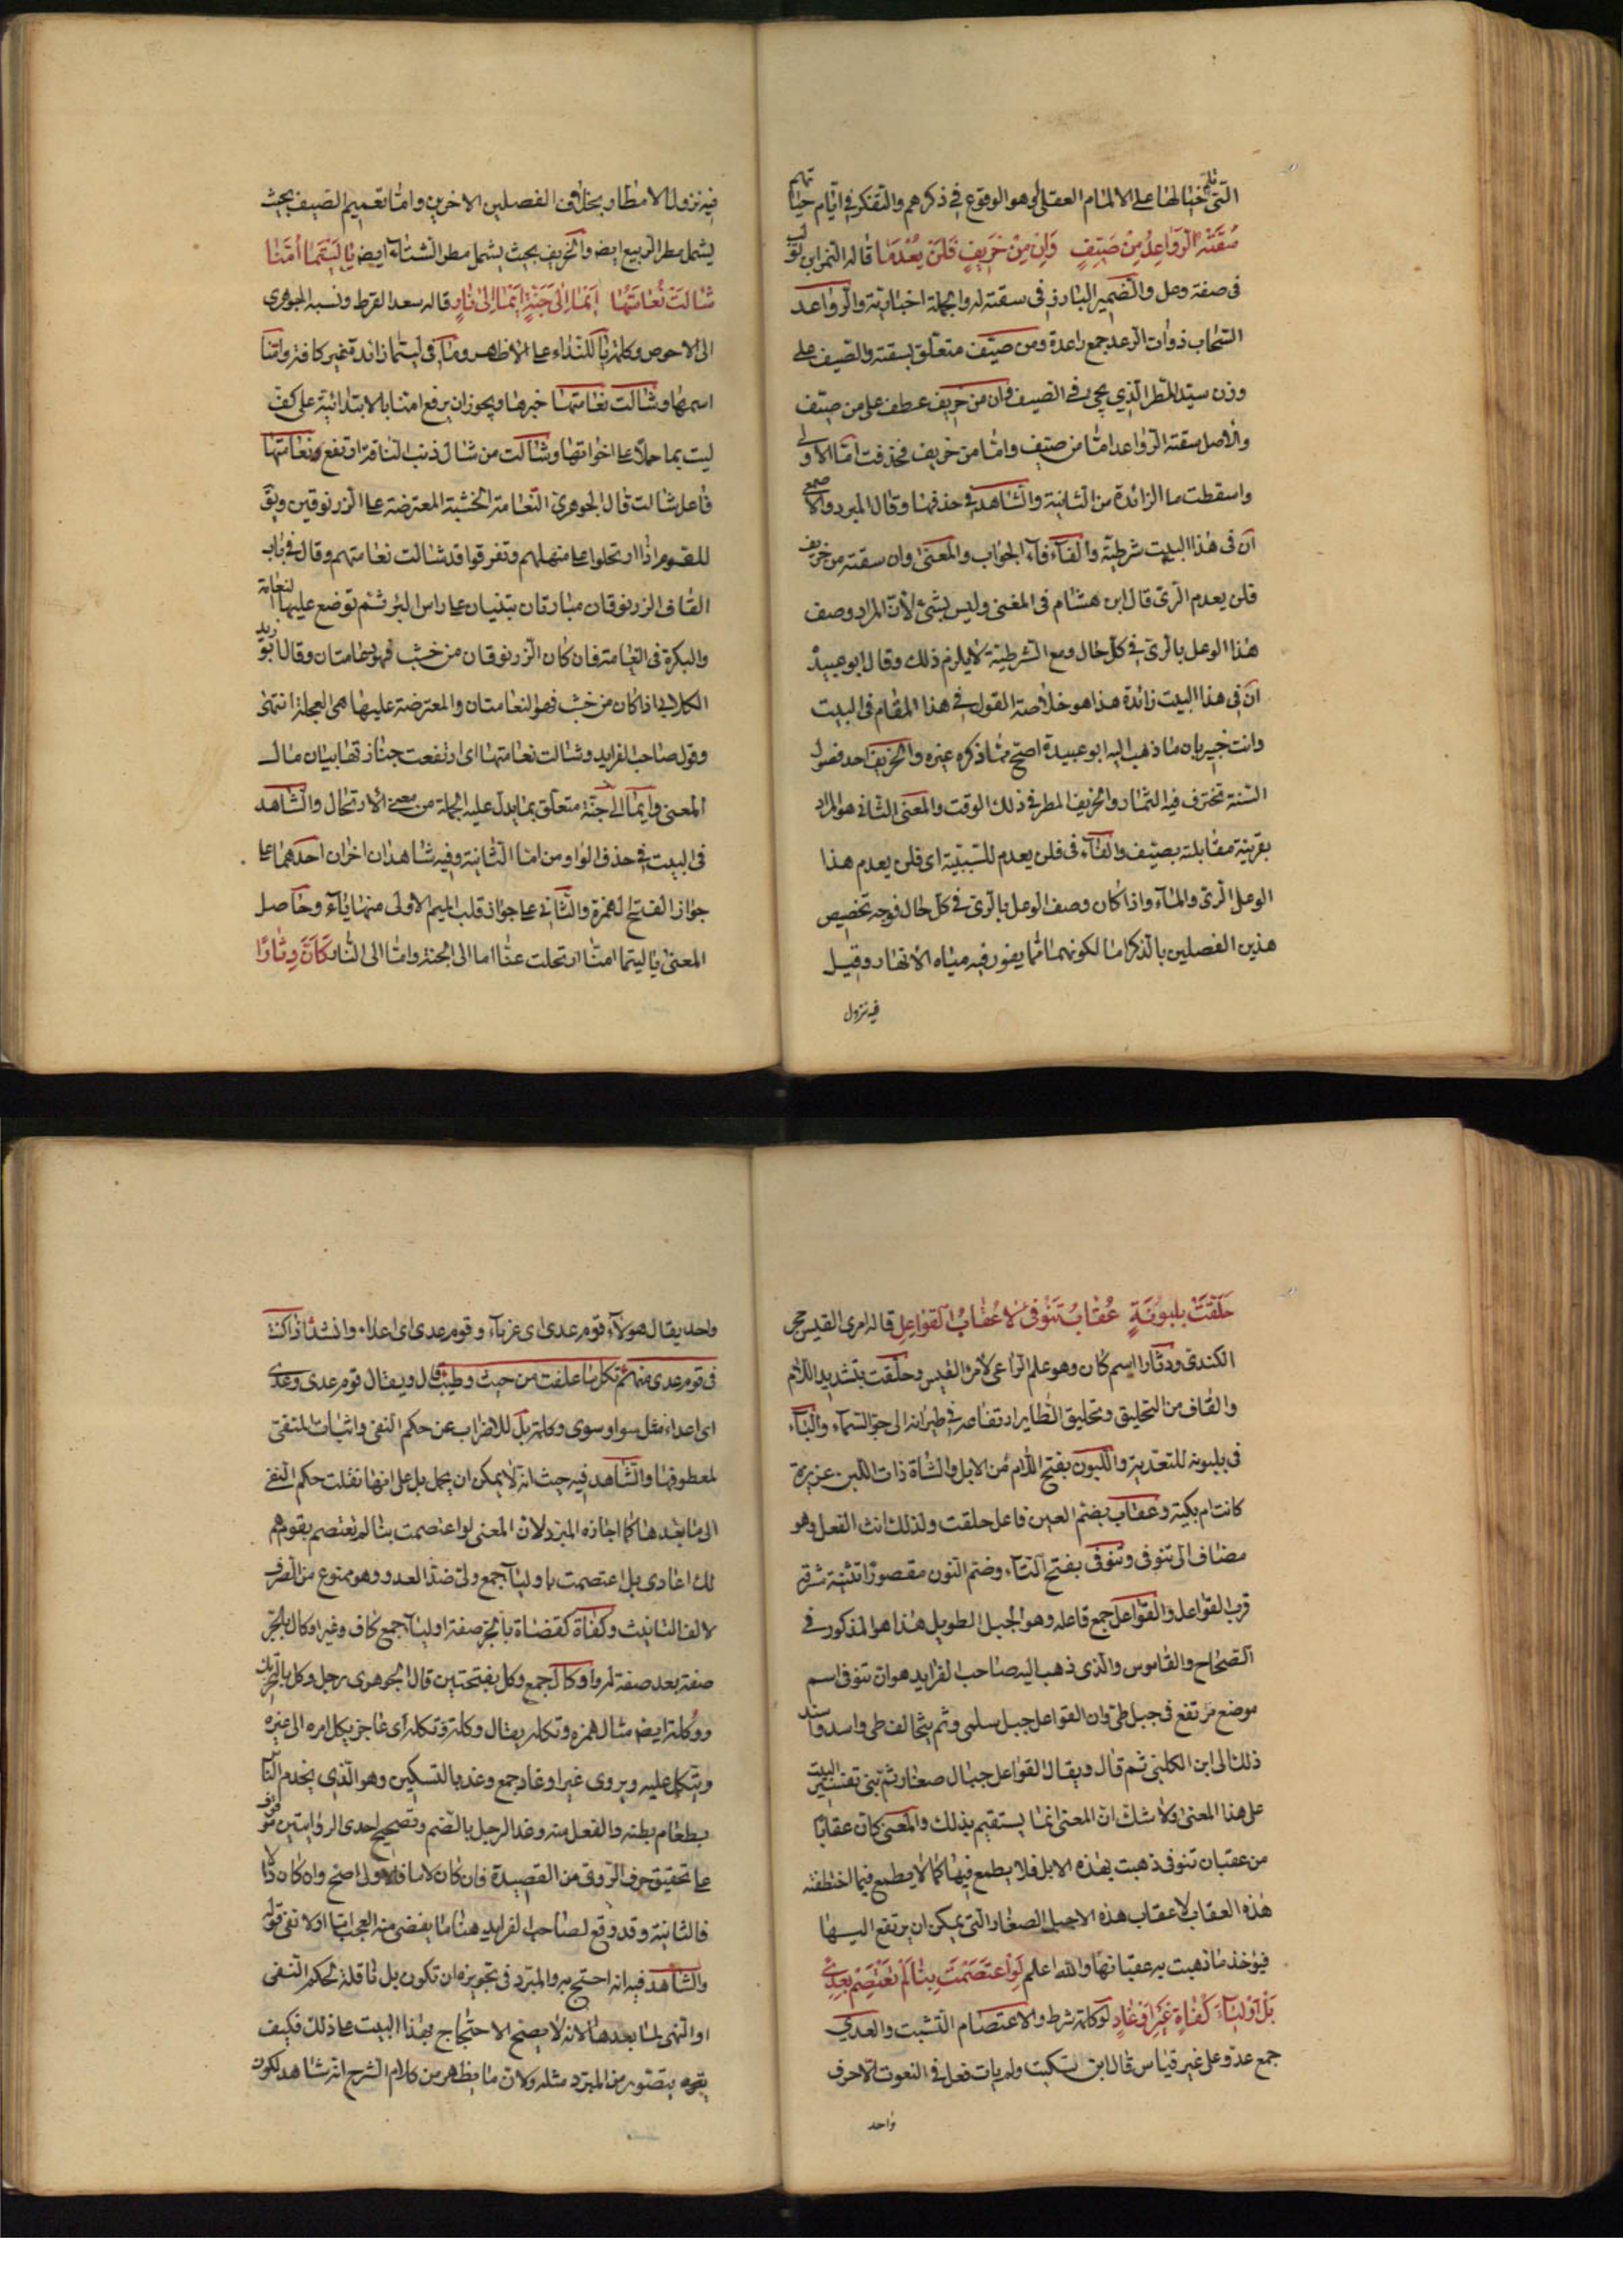 التی خیالها علی الالمام العقلی وهو الوقوع فی ذکرهم والتفکر فی ایّام حیاتهم
سَقَتْهُ الرَّوَاعِدُ مِنْ صَيِّفٍ وَاِنْ مِنْ خَرِيفٍ فَلَنْ يُعْدَمَا قاله النمر ابن تولب
فی صفة وعل والضمیر البارز فی سقته له والجملة اخباریّة والرواعد
السّحاب ذوات الرعد جمع راعدة ومن صیّف متعلّق بسقته والصّیف علی
وزن سیّد المطر الّذی یجیء فی الصیف وان من خریف عطف علی من صیّف
والاصل سقته الرواعد امّا من صیّف وامّا من خریف فحذفت امّا الاولی
واسقطت ما الزائدة من الثانیة والشاهد فی حذفها وقال المبرد والاصمعی
انّ فی هذا البیت شرطیّة والفاء فاء الجواب والمعنی وان سقته من خریف
فلن یعدم الرّی قال ابن هشام فی المغنی ولیس بشیء لانّ المراد وصف
هذا الوعل بالرّی فی کلّ حال ومع الشرطیّة لا یلزم ذلک وقال ابو عبیدة
انّ فی هذا البیت زائدة هذا هو خلاصة القول فی هذا المقام فی البیت
وانت خبیر بان ما ذهب الیه ابو عبیدة اصحّ ممّا ذکره غیره والخریف احد فصول
السّنة تخترف فیه الثمار والخریف المطر فی ذلک الوقت والمعنی الثانی هو المراد
بقرینة مقابلته بصیّف والفاء فی فلن یعدم للسّببیّة ای فلن یعدم هذا
الوعل الرّی والماء واذا کان وصف الوعل بالرّی فی کلّ حال فوجه تخصیص
هذین الفصلین بالذکر امّا لکونهما ممّا یغور فیه میاه الانهار وقیل
فیه نزول
فیه نزول الامطار بخلاف الفصلین الاخرین وامّا تعمیم الصّیف بحیث
یشمل مطر الربیع ایض والخریف بحیث یشمل مطر الشتاء ایض يَا لَيْتَمَا اُمُّنَا
شَالَتْ نَعَامَتُهَا اَيْمَا اِلَى جَنَّةٍ اَيْمَا اِلَى نَارٍ قاله سعد القرط ونسبه الجوهری
الی الاحوص وکلمة یا للنّداء علی الاظهر وما فی لیتما زائدة غیر کافة وامّنا
اسمها وشالت نعامتها خبرها ویجوز ان یرفع امنا بالابتدائیة علی کف
لیت بما حملا علی اخواتها وشالت من شال ذنب النّاقة ارتفع ونعامتها
فاعل شالت قال الجوهری النّعامة الخشبة المعترضة علی الزرنوقین ویق
للقوم اذا ارتحلوا علی منهلهم وتفرقوا قد شالت نعامتهم وقال فی باب
القاف الزرنوقان منارتان تبنیان علی راس البئر ثم توضع علیها النعامة
والبکرة فی النعامة فان کان الزرنوقان من خشب فهو نعامتان وقال ابو زید
الکلابی اذا کان من خشب فهو النعامتان والمعترضة علیها هی العجلة انتهی
وقول صاحب الفراید وشالت نعامتها ای ارتفعت جنازتها بیان مال
المعنی وایما الی جنّة متعلق بما یدل علیه الجملة من معنی الارتحال والشاهد
فی البیت فی حذف الواو من امّا الثانیة وفیه شاهدان اخران احدهما علی
جواز الفتح الهمزة والثانی علی جواز قلب المیم الاولی منها یاء وحاصل
المعنی یا لیتما امنّا ارتحلت عنّا اما الی الجنة وامّا الی النّار كَاَنَّ دِثَارًا
حَلَّقَتْ بِلَبُونَةٍ عُقَابُ تَنُوفَى لَا عُقَابُ الْقَوَاعِلِ قاله امرئ القیس حجر
الکندی ودثارا اسم کان وهو علم الراعی لامرئ القیس وحلّقت بتشدید اللام
والقاف من التحلیق وتحلیق الطایر ارتفاعه فی طیرانه الی جوّ السماء والباء
فی بلبونه للتعدیة واللبون بفتح اللام من الابل والشاة ذات اللبن عزیزة
کانت ام بکیة وعقاب بضمّ العین فاعل حلقت ولذلک انث الفعل وهو
مضاف الی تنوفی وتنوفی بفتح التاء وضم النون مقصورا ثنیة مشرفة
قرب القواعل والقواعل جمع قاعله وهو الجبل الطویل هذا هو المذکور فی
الصّحاح والقاموس والذی ذهب الیه صاحب الفراید هو ان تنوفی اسم
موضع مرتفع فی جبل طی وان القواعل جبل سلمی وثم یتحالف طی واسد واسند
ذلک الی ابن الکلبی ثم قال ویقال القواعل جبال صغار ثم بنی تفسیر البیت
علی هذا المعنی ولا شک انّ المعنی انما یستقیم بذلک والمعنی کان عقابًا
من عقبان تنوفی ذهبت بهذه الابل فلا یطمع فیها کما لا یطمع فیما اختطفته
هذه العقاب لا عقاب هذه الاجبل الصغار التی یمکن ان یرتفع الیها
فیؤخذ ما ذهبت به عقبانها والله اعلم لَوِ اعْتَصَمْتَ بِنَا لَمْ تَعْتَصِمْ بِعِدًى
بَلْ اَوْلِيَاءَ كُفَاةٍ غَيْرِ اَوْغَادٍ لو کلمة شرط والاعتصام التشبث والعدی
جمع عدّو علی غیر قیاس قال ابن السکیت ولم یات فعل فی النعوت الّا حرف
واحد
واحد یقال هولاء قوم عدی ای غرباء وقوم عدی ای اعداء وانشد اذا کنت
فی قوم عدی لست منهم فکل ما علفت من خبیث وطیّب قال ویقال قوم عدی وعدی
ای اعداء مثل سوا وسوی وکلمة بل للاضراب عن حکم النفی واثبات المنتفی
لمعطوفها والشاهد فیه حیث انّه لا یمکن ان یحمل بل علی انها نقلت حکم النّفی
الی ما بعدها کما اجازه المبرد لان المعنی لو اعتصمت بنا لم تعتصم بقوم هم
لک اعادی بل اعتصمت باولیاء جمع ولی ضدّ العدو وهو ممنوع من الصّرف
لالف التانیث وکفاة کقضاة بالجرّ صفة اولیاء جمع کاف وغیر اوکال بالجرّ
صفة بعد صفة لهم واوکال جمع وکل بفتحتین قال الجوهری رجل وکل بالتحریک
ووکلة ایض مثال همزه وتکلة یقال وکلة تکلة ای عاجز یکل امره الی غیره
ویتکل علیه ویروی غیر اوغاد جمع وغد بالتسکین وهو الّذی یخدم النّاس
بطعام بطنه والفعل منه وغد الرجل بالضم وتصحیح احدی الروایتین موقوف
علی تحقیق حرف الروی من القصیدة فان کان لاما فالاولی اصح وان کان دالا
فالثانیة وقد وقع لصاحب الفراید هنا ما یفضی منه العجب اما اولا ففی قوله
والشاهد فیه انه احتج به والمبرّد فی تجویزه ان تکون بل ناقلة لحکم النفی
او النهی لما بعدها لانه لا یصح الاحتجاج بهذا البیت علی ذلک فکیف
یتصوّر من المبرّد مثله ولان ما یظهر من کلام الشرح انه شاهد لکون